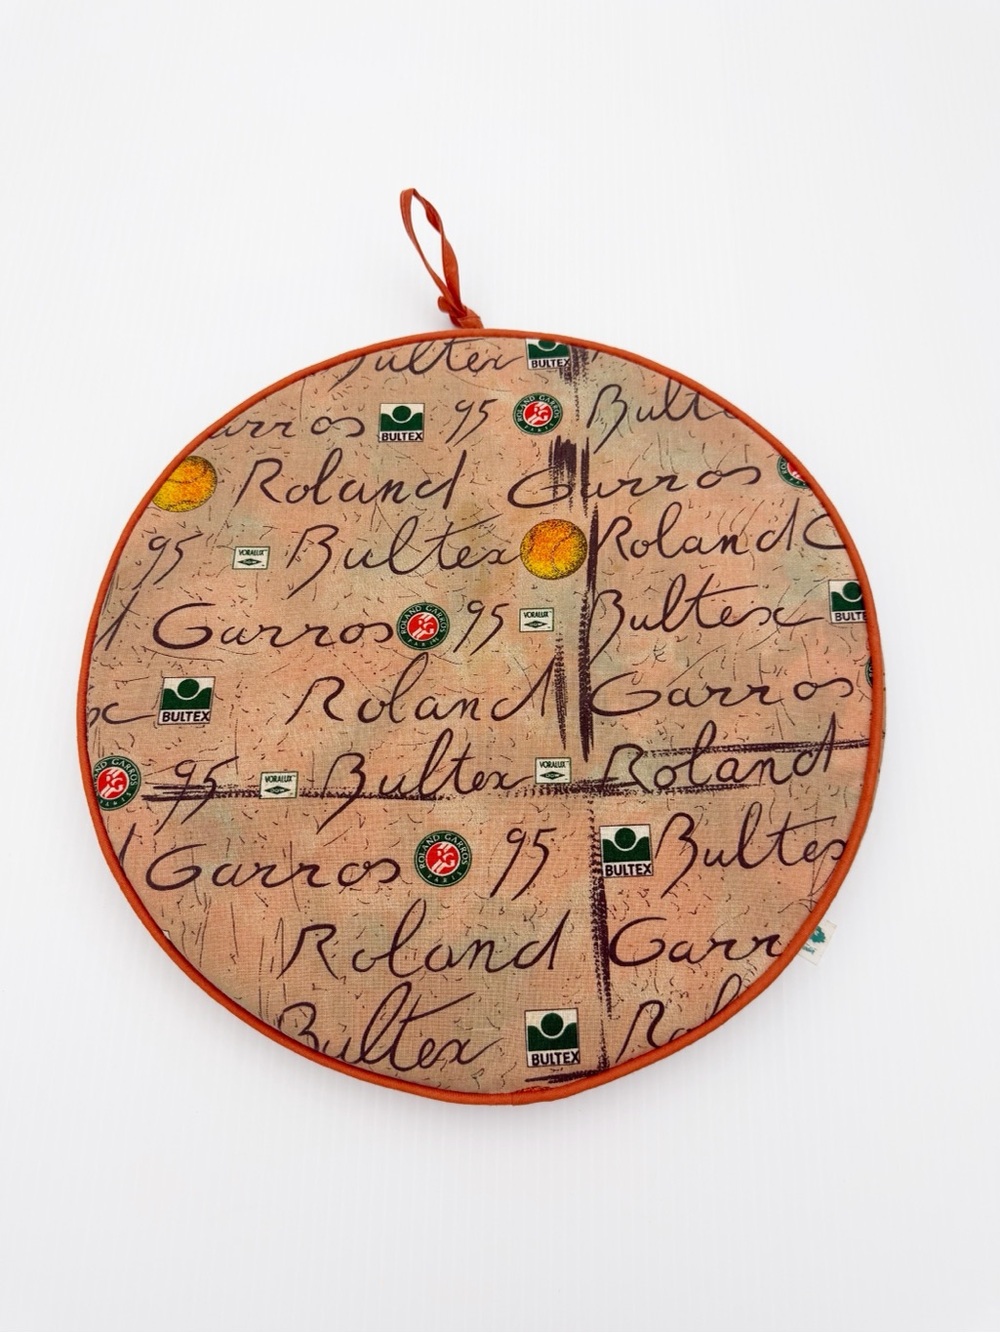 Bultex BULTEX
Garros BULTEX 95 ROLAND GARROS PARIS Bultex
Roland Garros
95 VORALUX Bultex Roland G
Garros ROLAND GARROS PARIS 95 VORALUX Bultex BULTEX
x BULTEX Roland Garros
ROLAND GARROS PARIS 95 VORALUX Bultex VORALUX Roland
d Garros ROLAND GARROS PARIS 95 BULTEX Bultex
Roland Garr
Bultex BULTEX Rol